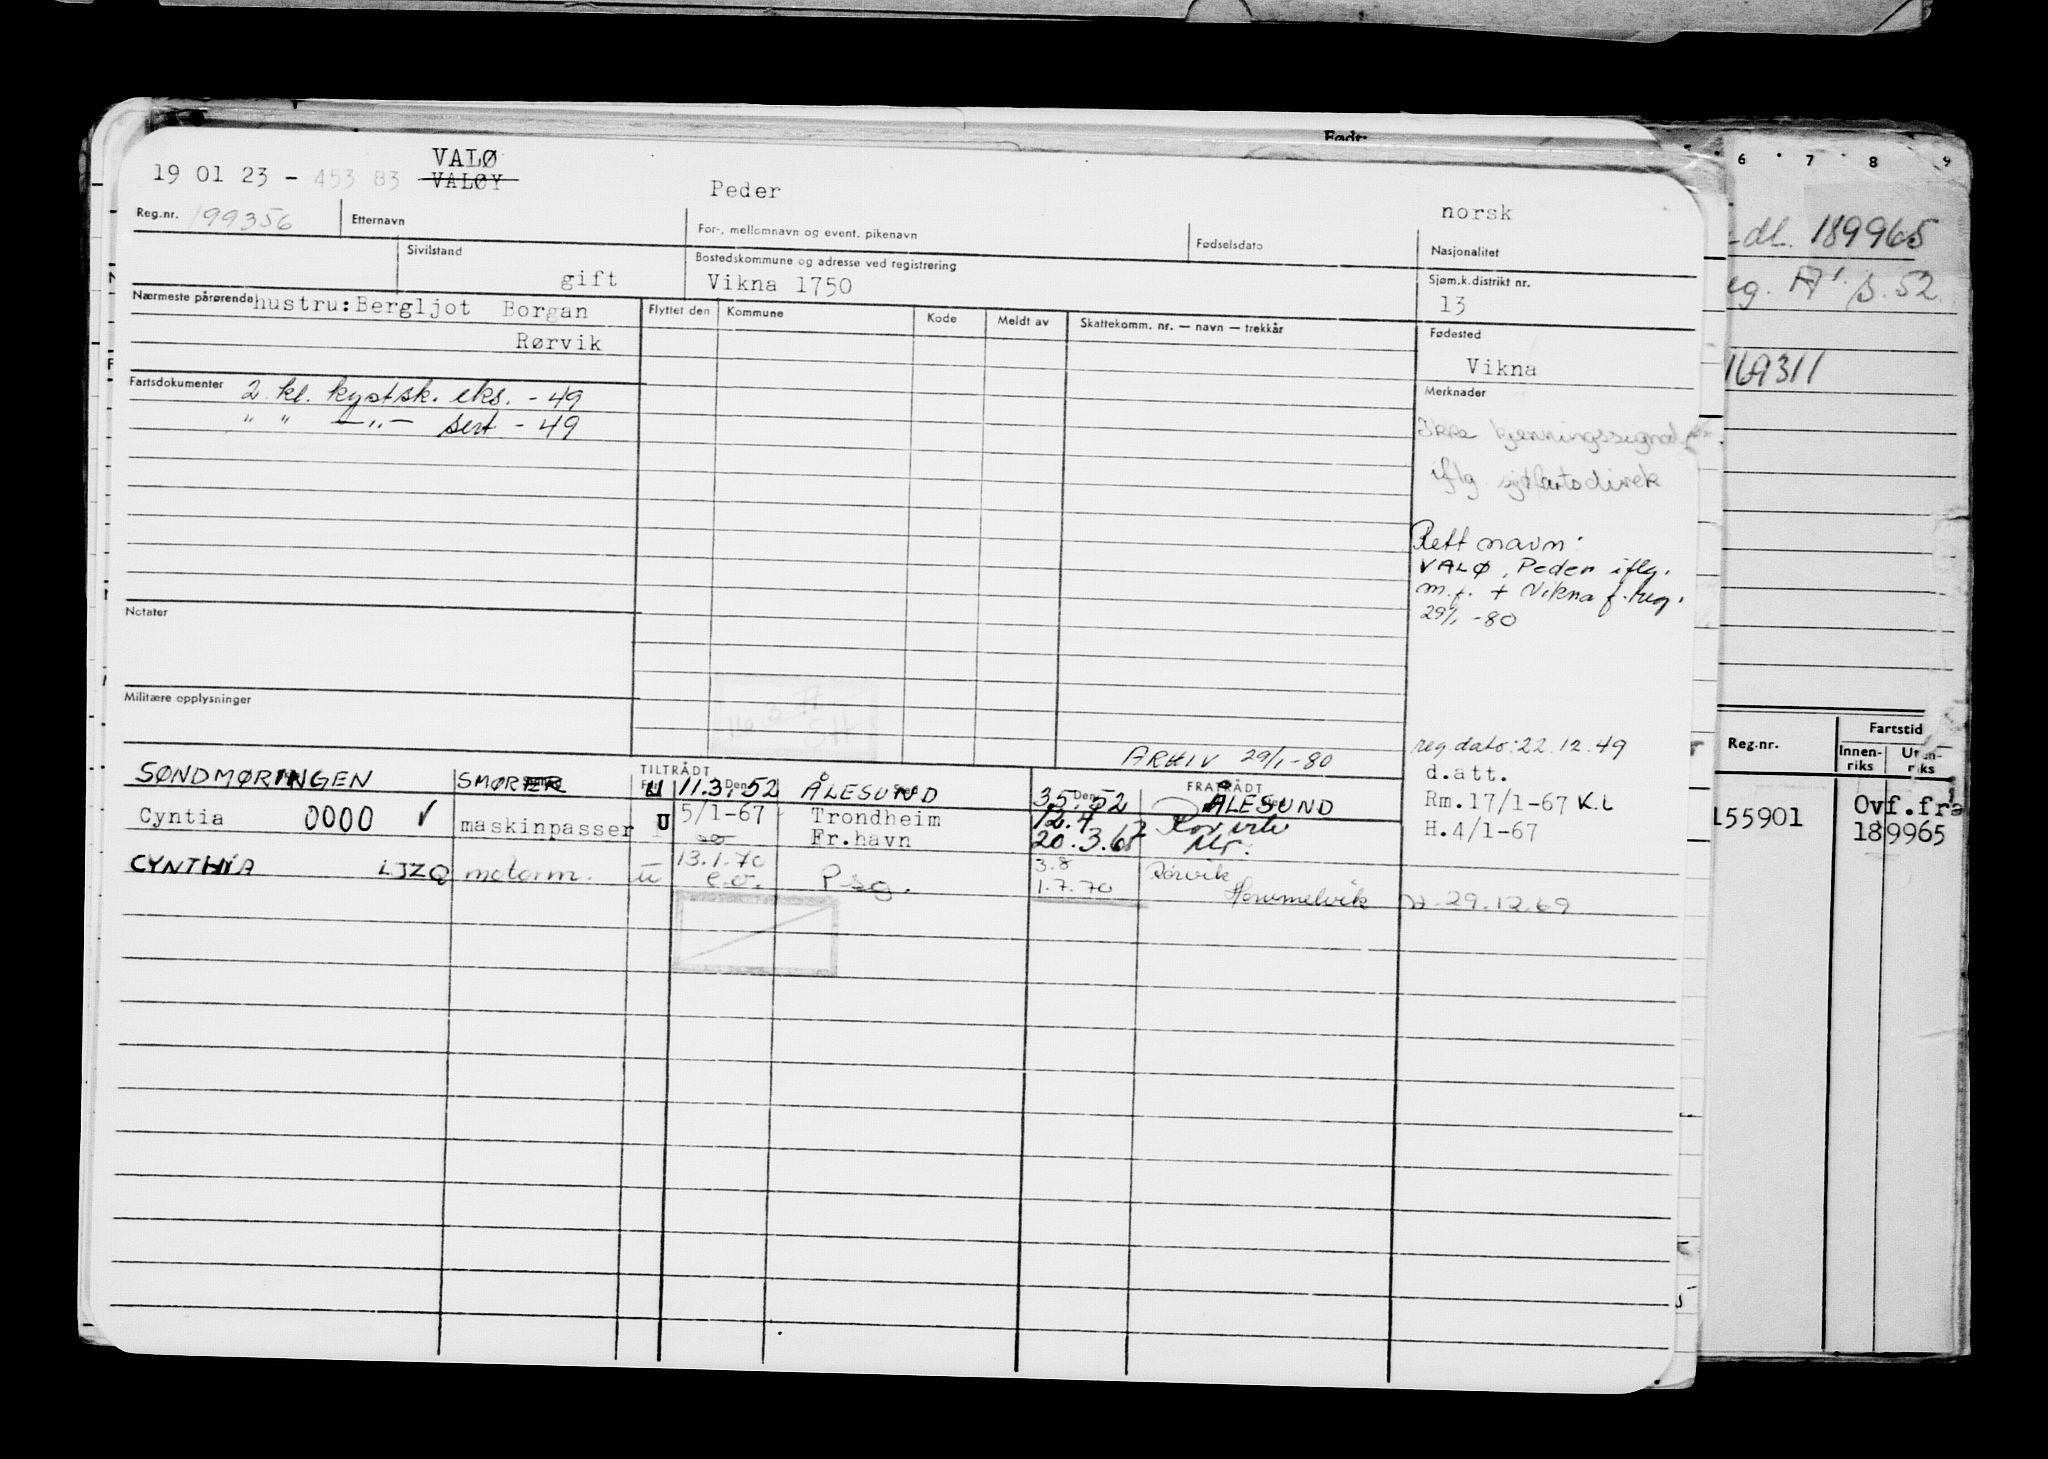 Født:
VALØ
19 01 23 - 453 83 VALØY Peder norsk
Reg.nr. 199356 Etternavn For-, mellomnavn og event. pikenavn Fødselsdato Nasjonalitet
Sivilstand gift Bostedskommune og adresse ved registrering Sjøm.k.distrikt nr.
Vikna 1750 13
Nærmeste pårørende hustru: Bergljot Borgan
Rørvik
Flyttet den Kommune Kode Meldt av Skattekomm. nr. — navn — trekkår Fødested
Vikna
Fartsdokumenter 2. kl. kystsk. eks. - 49
" " —„— sert - 49
Merknader
Ikke kjenningssignal
iflg. sjøfartsdirek
Rett navn:
VALØ, Peder iflg.
m.f. + Vikna f.reg.
29/1 -80
Notater
Militære opplysninger
ARKIV 29/1-80
reg.dato: 22.12.49
TILTRÅDT FRATRÅDT d.att.
SØNDMØRINGEN SMØRER U 11.3.52 ÅLESUND 3.5.52 ÅLESUND Rm.17/1-67 K.L
Cyntia 0000 ✓ maskinpasser U 5/1-67 Trondheim 12.4 Rørvik H.4/1-67
Fr.havn 20.3.67
CYNTHIA LJZQ motorm. u 13.1.70 3.8 Rørvik
e.o. Psg. 1.7.70 Hommelvik 29.12.69
6 7 8 9
189965
s.52
169311
Reg.nr. Fartstid
Innen-riks Uten-riks
155901 Ovf.fra
189965